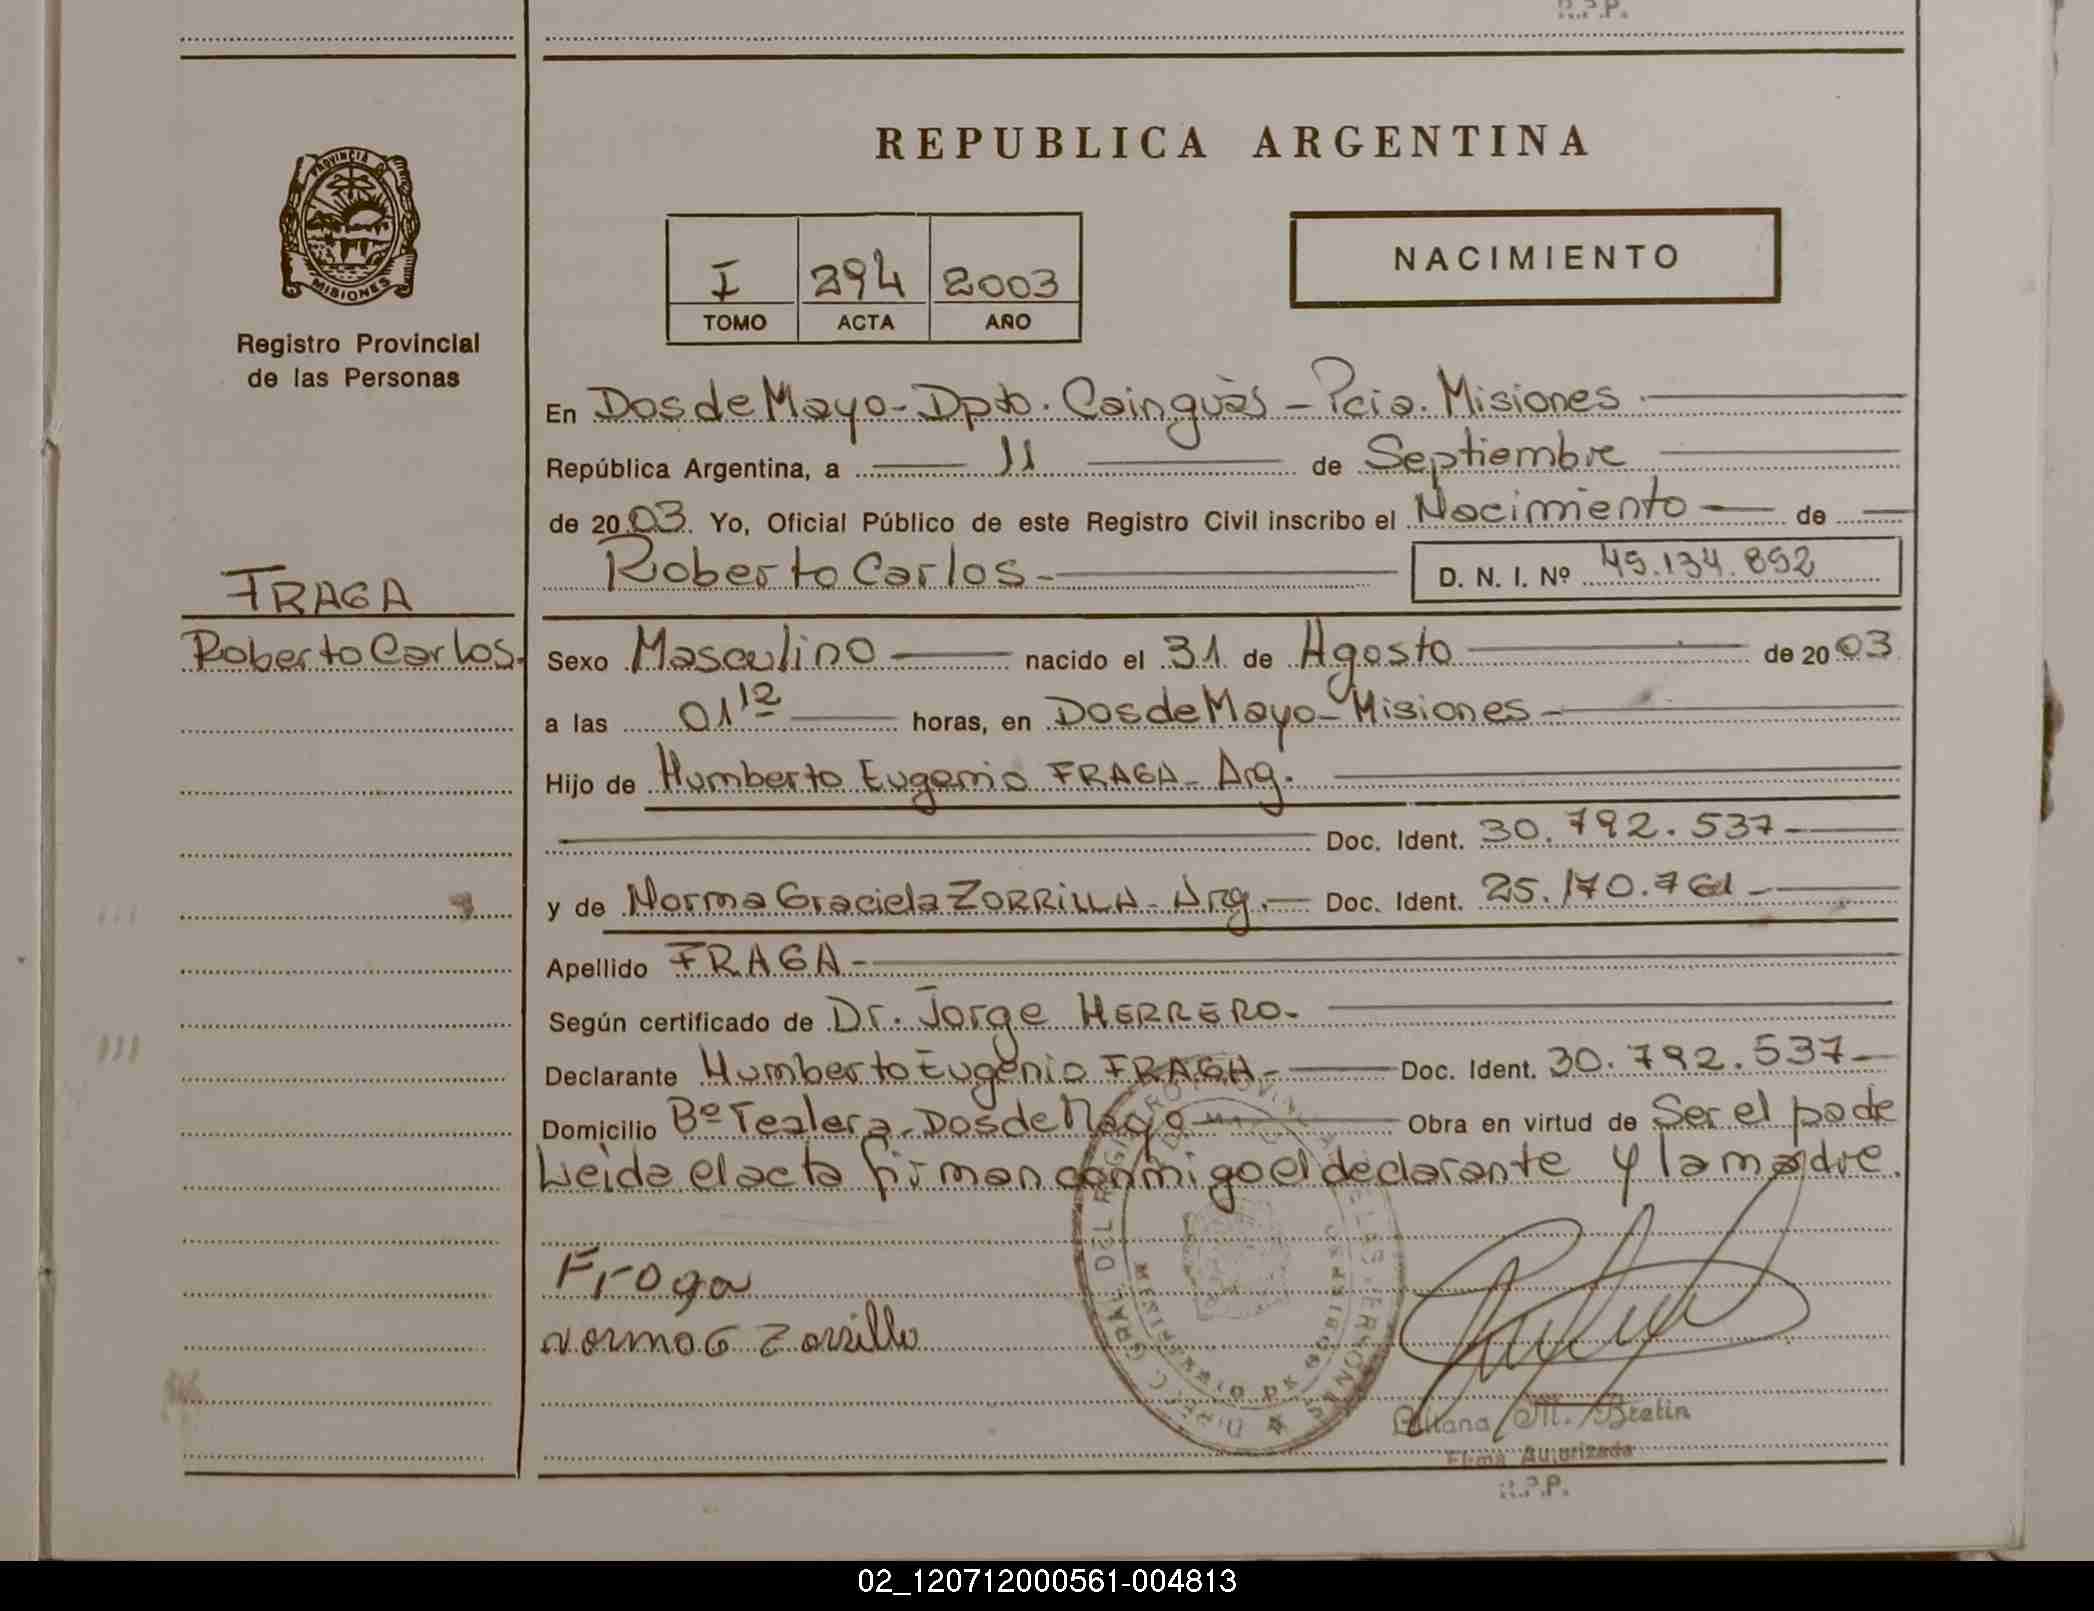 R.P.P.
REPUBLICA ARGENTINA
PROVINCIA DE
MISIONES
Registro Provincial
de las Personas
I 294 2003
TOMO ACTA AÑO
NACIMIENTO
En Dos de Mayo - Dpto. Cainguàs - Pcia. Misiones
República Argentina, a 11 de Septiembre
de 2003. Yo, Oficial Público de este Registro Civil inscribo el Nacimiento de
Roberto Carlos - D. N. I. Nº 45.134.852
FRAGA
Roberto Carlos.
Sexo Masculino nacido el 31 de Agosto de 2003
a las 01 12 horas, en Dos de Mayo - Misiones -
Hijo de Humberto Eugenio FRAGA - Arg.
Doc. Ident. 30.792.537 -
y de Norma Graciela ZORRILLA - Arg. - Doc. Ident. 25.170.761 -
Apellido FRAGA -
Según certificado de Dr. Jorge HERRERO -
Declarante Humberto Eugenio FRAGA - Doc. Ident. 30.792.537 -
Domicilio Bº Tealera - Dos de Mayo - Obra en virtud de Ser el padre
Leida el acta firman conmigo el declarante y la madre.
Fraga
Norma G Zorrilla
M. Bretin
Firma Autorizada
R.P.P.
02_120712000561-004813